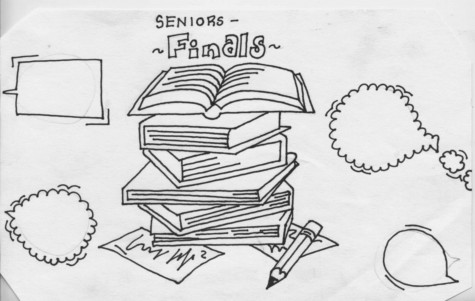 SENIORS -
~Finals~